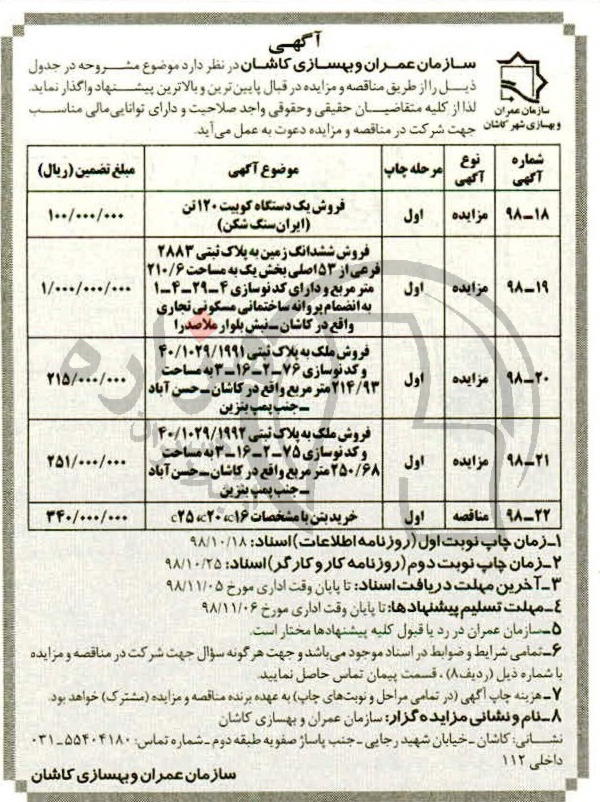 آگهی
سازمان عمران و بهسازی کاشان در نظر دارد موضوع مشروحه در جدول
ذیل را از طریق مناقصه و مزایده در قبال پایین‌ترین و بالاترین پیشنهاد واگذار نماید.
لذا از کلیه متقاضیان حقیقی وحقوقی واجد صلاحیت و دارای توانایی مالی مناسب
جهت شرکت در مناقصه و مزایده دعوت به عمل می‌آید.
سازمان عمران
و بهسازی شهر کاشان
شماره آگهی | نوع آگهی | مرحله چاپ | موضوع آگهی | مبلغ تضمین (ریال)
۹۸-۱۸ | مزایده | اول | فروش یک دستگاه کوبیت ۱۲۰ تن | ۱۰۰/۰۰۰/۰۰۰
(ایران سنگ شکن)
فروش ششدانگ زمین به پلاک ثبتی ۲۸۸۳
فرعی از ۵۳ اصلی بخش یک به مساحت ۲۱۰/۶
۹۸-۱۹ | مزایده | اول | متر مربع و دارای کد نوسازی ۴-۲۹-۴-۱ | ۱/۰۰۰/۰۰۰/۰۰۰
به انضمام پروانه ساختمانی مسکونی تجاری
واقع در کاشان ـ نبش بلوار ملاصدرا
فروش ملک به پلاک ثبتی ۴۰/۱۰۲۹/۱۹۹۱
۹۸-۲۰ | مزایده | اول | و کد نوسازی ۷۶-۲-۱۶-۳ به مساحت | ۲۱۵/۰۰۰/۰۰۰
۲۱۴/۹۳ متر مربع واقع در کاشان ـ حسن آباد
ـ جنب پمپ بنزین
فروش ملک به پلاک ثبتی ۴۰/۱۰۲۹/۱۹۹۲
۹۸-۲۱ | مزایده | اول | و کد نوسازی ۷۵-۲-۱۶-۳ به مساحت | ۲۵۱/۰۰۰/۰۰۰
۲۵۰/۶۸ متر مربع واقع در کاشان ـ حسن آباد
ـ جنب پمپ بنزین
۹۸-۲۲ | مناقصه | اول | خرید بتن با مشخصات c۲۵ ،c۲۰ ،c۱۶ | ۳۴۰/۰۰۰/۰۰۰
۱ـ زمان چاپ نوبت اول (روزنامه اطلاعات) اسناد: ۹۸/۱۰/۱۸
۲ـ زمان چاپ نوبت دوم (روزنامه کار و کارگر) اسناد: ۹۸/۱۰/۲۵
۳ـ آخرین مهلت دریافت اسناد: تا پایان وقت اداری مورخ ۹۸/۱۱/۰۵
۴ـ مهلت تسلیم پیشنهادها: تا پایان وقت اداری مورخ ۹۸/۱۱/۰۶
۵ـ سازمان عمران در رد یا قبول کلیه پیشنهادها مختار است.
۶ـ تمامی شرایط و ضوابط در اسناد موجود می‌باشد و جهت هرگونه سؤال جهت شرکت در مناقصه و مزایده
با شماره ذیل (ردیف ۸) ، قسمت پیمان تماس حاصل نمایید.
۷ـ هزینه چاپ آگهی (در تمامی مراحل و نوبت‌های چاپ) به عهده برنده مناقصه و مزایده (مشترک) خواهد بود.
۸ـ نام و نشانی مزایده گزار: سازمان عمران و بهسازی کاشان
نشانی: کاشان ـ خیابان شهید رجایی ـ جنب پاساژ صفویه طبقه دوم ـ شماره تماس: ۵۵۴۰۴۱۸۰-۰۳۱
داخلی ۱۱۲
سازمان عمران و بهسازی کاشان